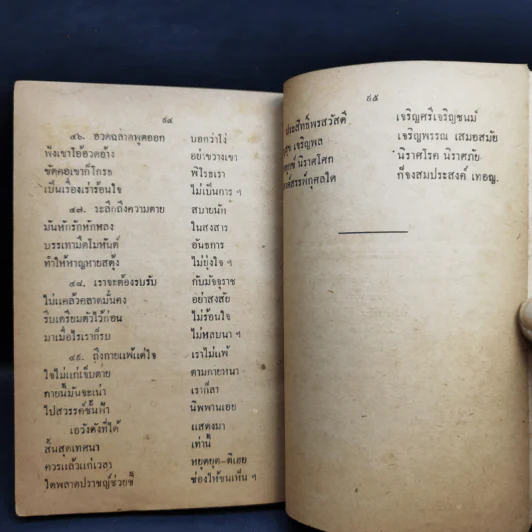 ๙๔
๔๖. อวดฉลาดพูดออก บอกว่าโง่
ฟังเขาโอ้อวดอ้าง อย่าขวางเขา
ขัดคอเขาก็โกรธ พิโรธเรา
เป็นเรื่องเร่าร้อนใจ ไม่เป็นการ ฯ
๔๗. ระลึกถึงความตาย สบายนัก
มันหักรักหักหลง ในสงสาร
บรรเทามืดโมหันต์ อันธการ
ทำให้หาญหายสดุ้ง ไม่ยุ่งใจ ฯ
๔๘. เราจะต้องรบรับ กับมัจจุราช
ไม่แคล้วคลาดมั่นคง อย่าสงสัย
รีบเตรียมตัวไว้ก่อน ไม่ร้อนใจ
มาเมื่อไรเราก็รบ ไม่หลบนา ฯ
๔๙. ถึงกายแพ้แต่ใจ เราไม่แพ้
ใจไม่แก่เจ็บตาย ตามกายหนา
กายนี้มันจะเน่า เราก็ลา
ไปสวรรค์ชั้นฟ้า นิพพานเอย
เอวังดังที่ได้ แสดงมา
สิ้นสุดเทศนา เท่านี้
ควรแล้วแก่เวลา หยุดยุด-ติเฮย
ใดพลาดปราชญ์ช่วยชี้ ช่องให้ชนเห็น ฯ
๙๕
ประสิทธิ์พรสวัสดี เจริญศรีเจริญชนม์
สุข เจริญผล เจริญพรรณ เสมอสมัย
ทุกข์ นิราศโศก นิราศโรค นิราศภัย
สรรพ์กุศลใด ก็จงสมประสงค์ เทอญ.